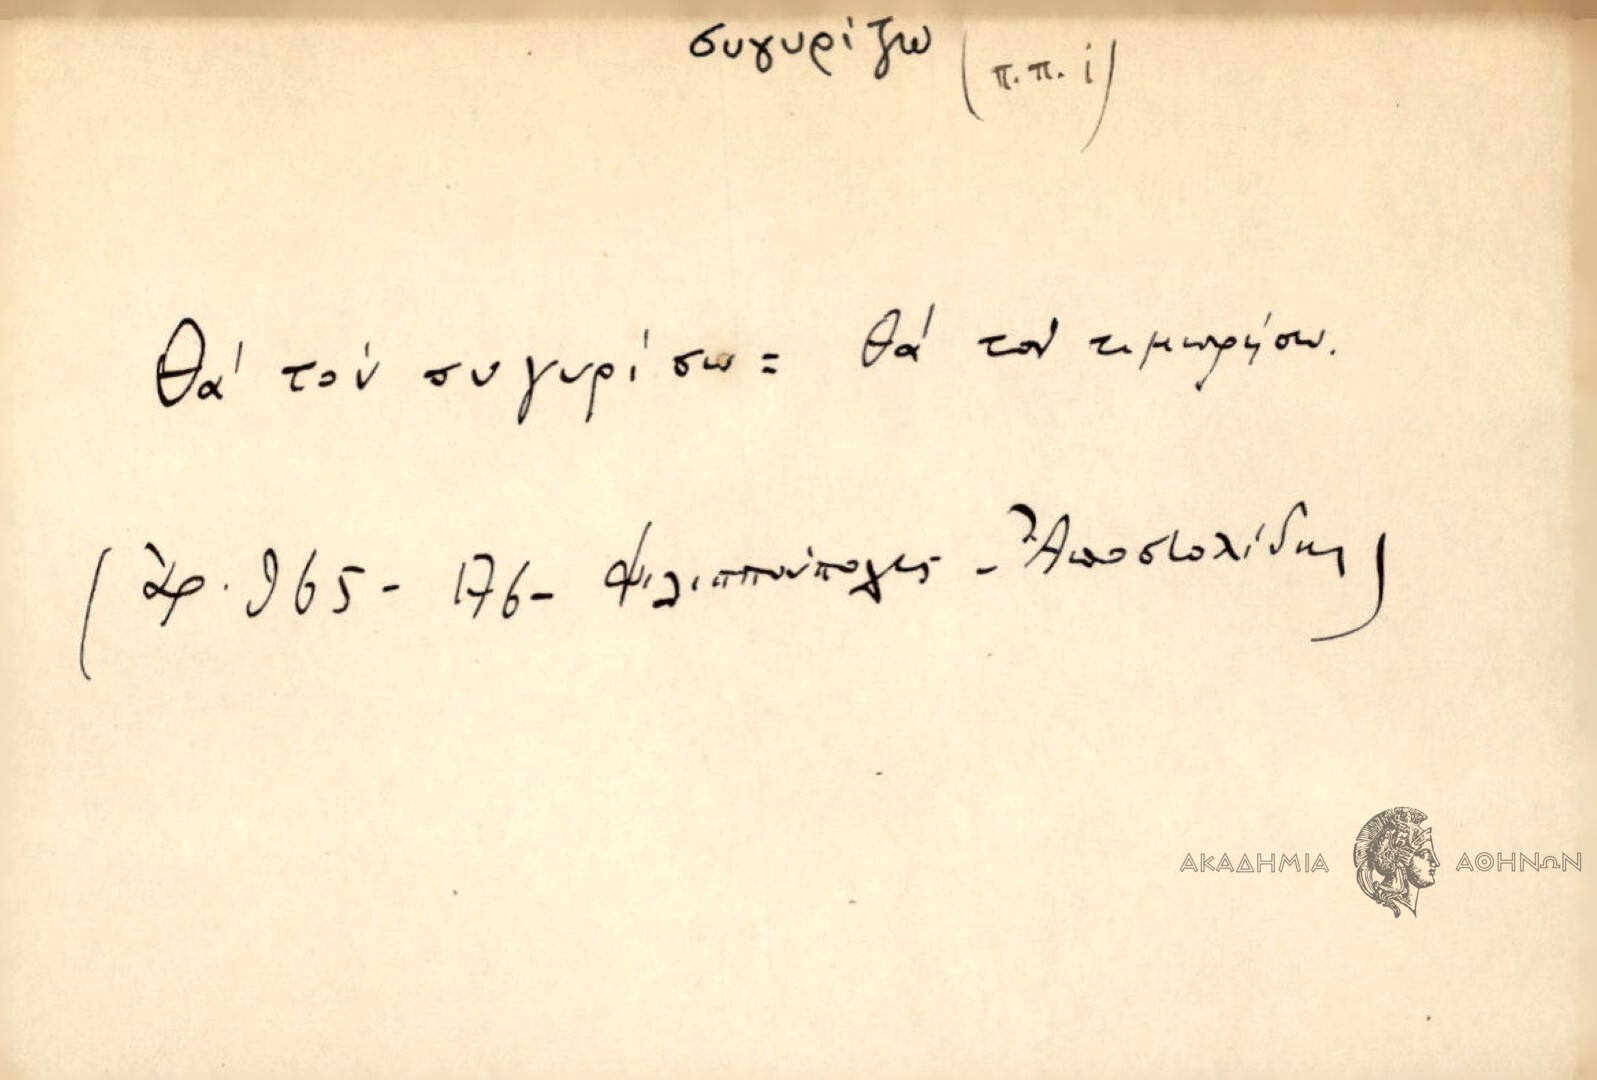 συγυρίζω (π.π. i)
θά τόν συγυρίσω = θά τόν τιμωρήσω.
(ἀρ. 965 - 176 - Φιλιππούπολις - Ἀποστολίδη)
ΑΚΑΔΗΜΙΑ ΑΘΗΝΩΝ